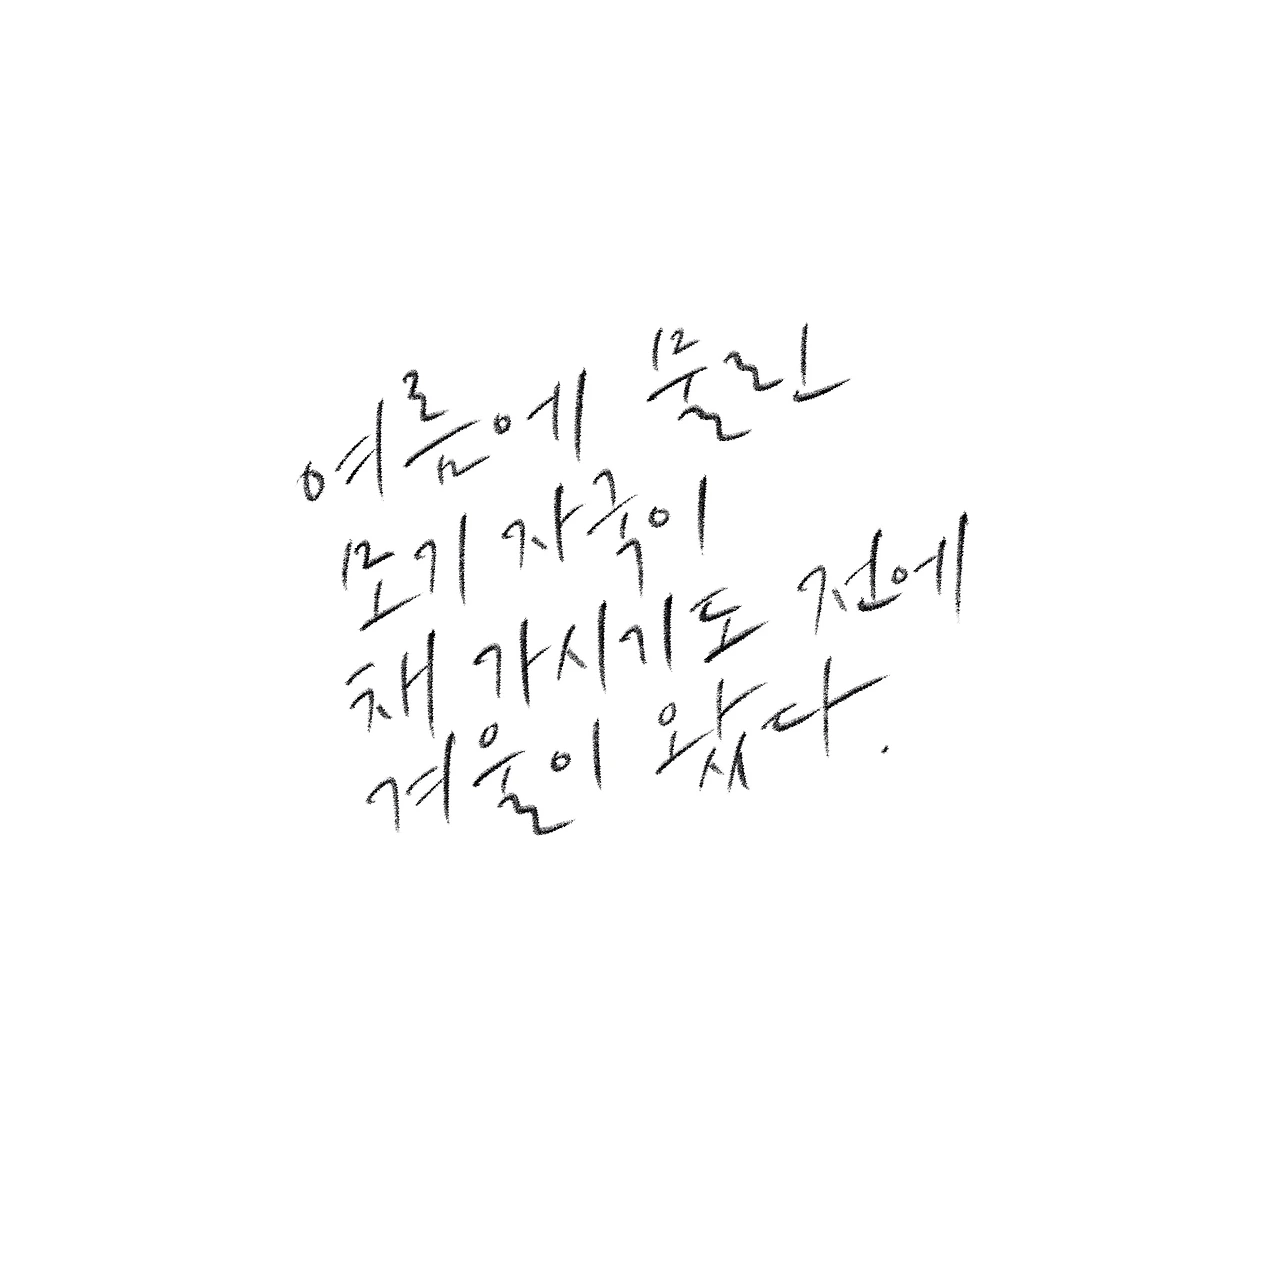 여름에 물린
모기 자국이
채 가시기도 전에
겨울이 왔다.